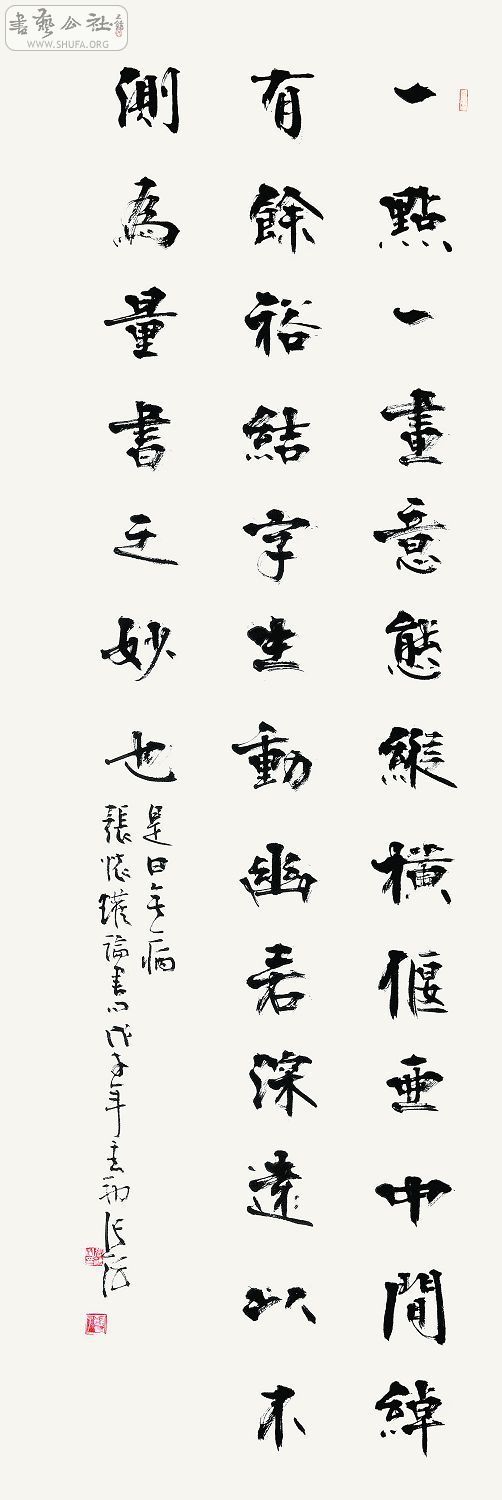 書藝公社
WWW.SHUFA.ORG
一點一畫意態縱橫偃亞中間綽
有餘裕結字生動幽若深遠以不
測為量書之妙也
是曰無病
張懷瓘論書以戊子年